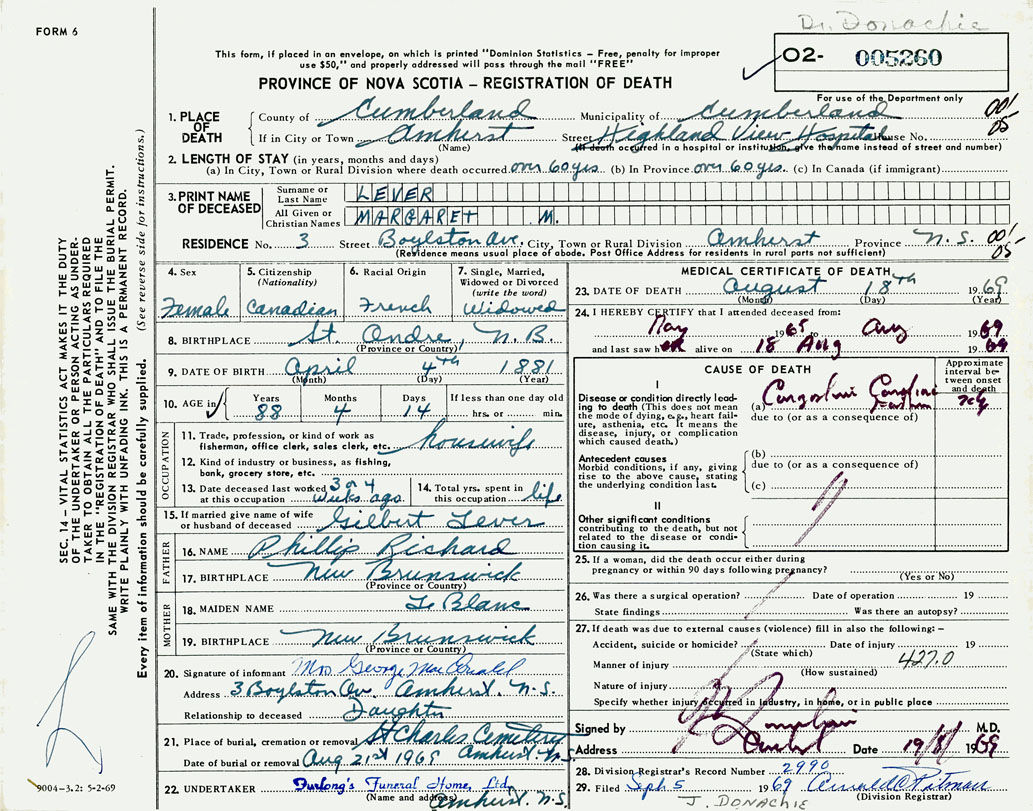 Dr. Donachie
FORM 6
This form, if placed in an envelope, on which is printed "Dominion Statistics – Free, penalty for improper
use $50," and properly addressed will pass through the mail "FREE"
O2- 005260
PROVINCE OF NOVA SCOTIA – REGISTRATION OF DEATH
For use of the Department only
1. PLACE OF DEATH
County of Cumberland Municipality of Cumberland 00'
If in City or Town Amherst Street Highland View Hospital House No. 05
(Name) (If death occurred in a hospital or institution, give the name instead of street and number)
2. LENGTH OF STAY (in years, months and days)
(a) In City, Town or Rural Division where death occurred over 60 yrs. (b) In Province over 60 yrs. (c) In Canada (if immigrant)
3. PRINT NAME OF DECEASED
Surname or Last Name LEVER
All Given or Christian Names MARGARET M.
RESIDENCE No. 3 Street Boylston Ave. City, Town or Rural Division Amherst Province N.S. 00'
(Residence means usual place of abode. Post Office Address for residents in rural parts not sufficient) 05
4. Sex
Female
5. Citizenship (Nationality)
Canadian
6. Racial Origin
French
7. Single, Married, Widowed or Divorced (write the word)
Widowed
8. BIRTHPLACE St. Andre, N.B.
(Province or Country)
9. DATE OF BIRTH April 4th 1881
(Month) (Day) (Year)
10. AGE in Years Months Days If less than one day old
88 4 14 hrs. or min.
OCCUPATION
11. Trade, profession, or kind of work as
fisherman, office clerk, sales clerk, etc. housewife
12. Kind of industry or business, as fishing,
bank, grocery store, etc.
13. Date deceased last worked at this occupation 3 or 4 weeks ago
14. Total yrs. spent in this occupation life
15. If married give name of wife
or husband of deceased Gilbert Lever
FATHER
16. NAME Phillip Richard
17. BIRTHPLACE New Brunswick
(Province or Country)
MOTHER
18. MAIDEN NAME Le Blanc
19. BIRTHPLACE New Brunswick
(Province or Country)
20. Signature of informant Mrs George MacDonald
Address 3 Boylston Av. Amherst. N.S.
Relationship to deceased Daughter
21. Place of burial, cremation or removal St Charles Cemetery
Date of burial or removal Aug 21st 1969 Amherst. N.S.
22. UNDERTAKER Furlong's Funeral Home, Ltd.
(Name and address) Amherst. N.S.
MEDICAL CERTIFICATE OF DEATH
23. DATE OF DEATH August 18th 1969
(Month) (Day) (Year)
24. I HEREBY CERTIFY that I attended deceased from:
May 1965 to Aug 1969
and last saw her alive on 18 Aug 1969
CAUSE OF DEATH
Approximate interval between onset and death
I
Disease or condition directly leading to death (This does not mean the mode of dying, e.g., heart failure, asthenia, etc. It means the disease, injury, or complication which caused death.)
(a) Congestive Cardiac
due to (or as a consequence of)
Antecedent causes
Morbid conditions, if any, giving rise to the above cause, stating the underlying condition last.
(b)
due to (or as a consequence of)
(c)
II
Other significant conditions
contributing to the death, but not related to the disease or condition causing it.
25. If a woman, did the death occur either during
pregnancy or within 90 days following pregnancy?
(Yes or No)
26. Was there a surgical operation? Date of operation 19
State findings Was there an autopsy?
27. If death was due to external causes (violence) fill in also the following: –
Accident, suicide or homicide? Date of injury 19
(State which)
Manner of injury 427.0
(How sustained)
Nature of injury
Specify whether injury occurred in industry, in home, or in public place
Signed by M.D.
Address Amherst Date 19/8/1969
28. Division Registrar's Record Number 2990
29. Filed Sept. 5 1969 Arnold C Pitman
(Division Registrar)
J. DONACHIE
SEC. 14 – VITAL STATISTICS ACT MAKES IT THE DUTY
OF THE UNDERTAKER OR PERSON ACTING AS UNDER-
TAKER TO OBTAIN ALL THE PARTICULARS REQUIRED
IN THE "REGISTRATION OF DEATH" AND TO FILE THE
SAME WITH THE DIVISION REGISTRAR WHO SHALL ISSUE THE BURIAL PERMIT.
WRITE PLAINLY WITH UNFADING INK. THIS IS A PERMANENT RECORD.
Every item of information should be carefully supplied. (See reverse side for instructions.)
9004-3.2: 5-2-69